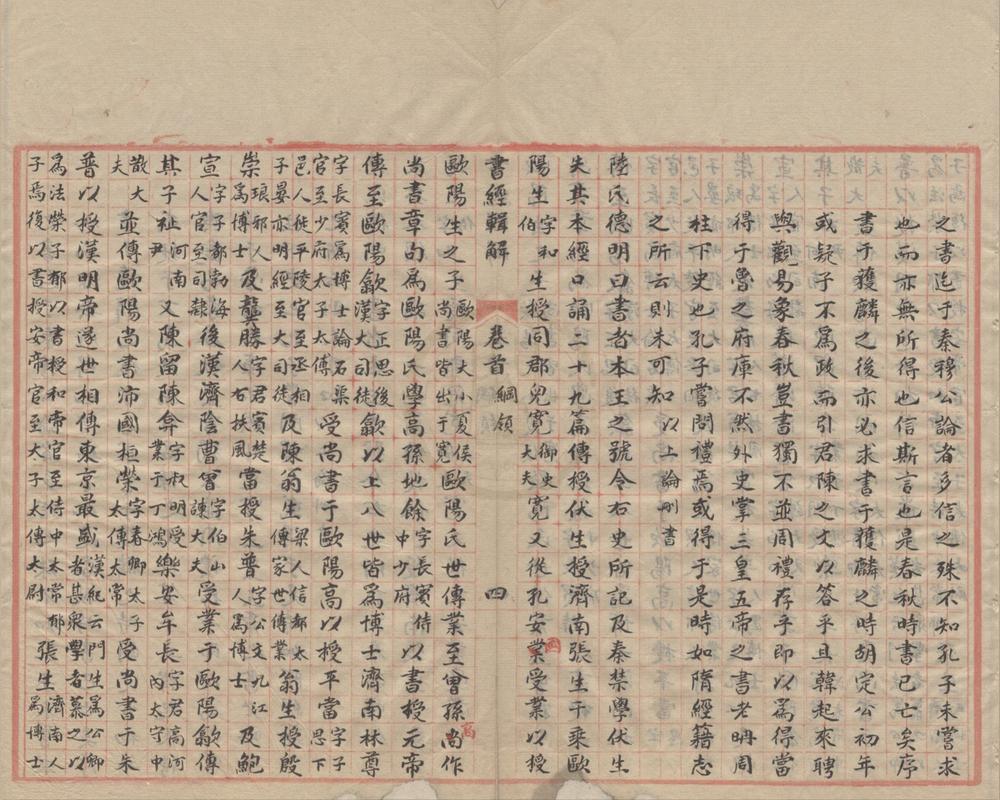 之書迄于秦穆公論者多信之殊不知孔子未嘗求
也而亦無所得也信斯言也是春秋時書已亡矣序
書于獲麟之後亦必求書于獲麟之時胡定公初年
或疑子不為政而引君陳之文以答乎且韓起來聘
與觀易象春秋豈書獨不並周禮存乎即以為得當
得于魯之府庫不然外史掌三皇五帝之書老聃周
柱下史也孔子嘗問禮焉或得于是時如隋經籍志
之所云則未可知 以上論刪書
陸氏德明曰書者本王之號令右史所記及秦禁學伏生
失其本經口誦二十九篇傳授伏生授濟南張生千乘歐
陽生字和伯生授同郡兒寬御史大夫寬又從孔安業國受業以授
書經輯解 卷首 綱領 四
歐陽生之子歐陽大小夏侯尚書皆出于寬歐陽氏世傳業至曾孫尚高作
尚書章句為歐陽氏學高孫地餘字長賓侍中少府以書授元帝
傳至歐陽歙字正思後漢大司徒歙以上八世皆為博士濟南林尊
字長賓為博士論石渠官至少府太子太傅受尚書于歐陽高以授平當字子思下
邑人徙平陵官至丞相子晏亦明經至大司徒及陳翁生梁人信都太傅世傳業翁生授殷
崇琅邪人為博士及龔勝字君賓楚人右扶風當授朱普字公文九江人為博士及鮑
宣字子都勃海人官至司隸後漢濟陰曹曾字伯山諫大夫受業于歐陽歙傳
其子祉河南尹又陳留陳弇字叔明受業于丁鴻樂安牟長字君高河內太守中
散大夫並傳歐陽尚書沛國桓榮字春卿太子太傅太常受尚書于朱
普以授漢明帝遂世相傳東京最盛漢紀云門生為公卿者甚眾學者慕之以
為法榮子郁以書授和帝官至侍中太常郁子焉復以書授安帝官至太子太傅太尉張生濟南人為博士